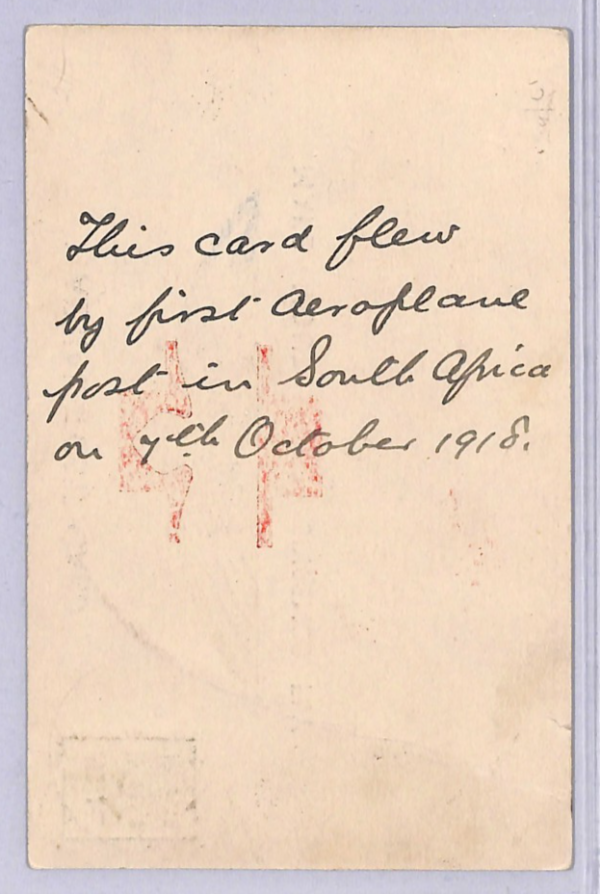 This card flew
by first Aeroplane
post in South Africa
on 7th October 1918.